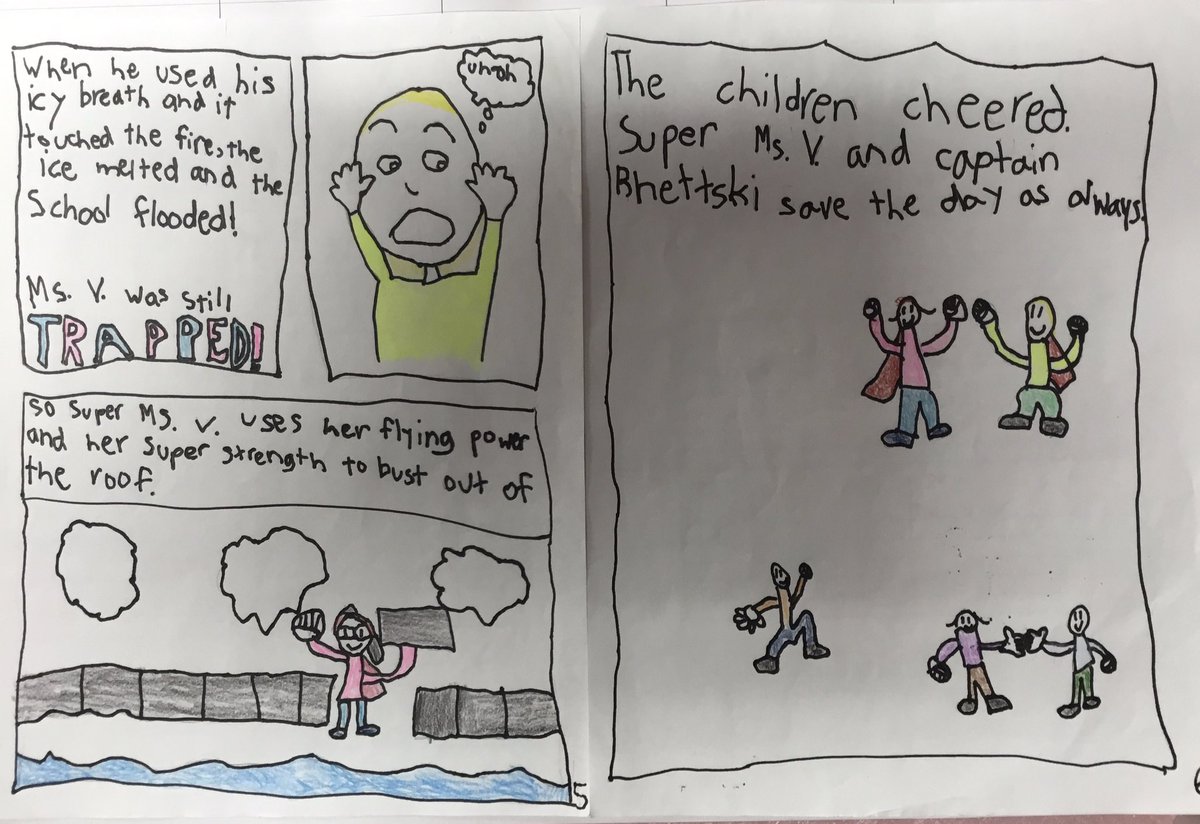 When he used his
icy breath and it
touched the fire, the
ice melted and the
School flooded!
Ms. V. was still
TRAPPED!
uh-oh
so super Ms. V. uses her flying power
and her super strength to bust out of
the roof.
5
The children cheered.
Super Ms. V. and captain
Bhettski save the day as always.